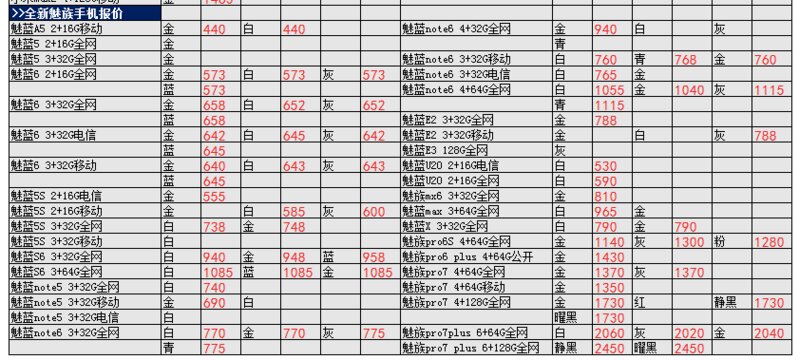 >>全新魅族手机报价
魅蓝A5 2+16G移动 金 440 白 440 魅蓝note6 4+32G全网 金 940 白 灰
魅蓝5 2+16G全网 金 青
魅蓝5 3+32G全网 金 魅蓝note6 3+32G移动 白 760 青 768 金 760
魅蓝6 2+16G全网 金 573 白 573 灰 573 魅蓝note6 3+32G电信 白 765 金
蓝 573 魅蓝note6 4+64G全网 白 1055 金 1040 灰 1115
魅蓝6 3+32G全网 金 658 白 652 灰 652 青 1115
蓝 658 魅蓝E2 3+32G全网 金 788
魅蓝6 3+32G电信 金 642 白 645 灰 642 魅蓝E2 3+32G移动 金 白 灰 788
蓝 645 魅蓝E3 128G全网 灰
魅蓝6 3+32G移动 金 640 白 643 灰 643 魅蓝U20 2+16G电信 白 530
蓝 645 魅蓝U20 2+16G全网 白 590
魅蓝5S 2+16G电信 金 555 魅族mx6 3+32G全网 金 810
魅蓝5S 2+16G移动 金 白 585 灰 600 魅蓝max 3+64G全网 白 965 金
魅蓝5S 3+32G全网 白 738 金 748 魅蓝X 3+32G全网 白 790 金 790
魅蓝5S 3+32G移动 白 魅族pro6S 4+64G全网 金 1140 灰 1300 粉 1280
魅蓝S6 3+32G全网 白 940 金 948 蓝 958 魅族pro6 plus 4+64G公开 金 1430
魅蓝S6 3+64G全网 白 1085 蓝 1085 金 1085 魅族pro7 4+64G全网 金 1370 灰 1370
魅蓝note5 3+32G全网 白 740 魅族pro7 4+64G移动 金 1350
魅蓝note5 3+32G移动 金 690 白 魅族pro7 4+128G全网 金 1730 红 静黑 1730
魅蓝note5 3+32G电信 白 曜黑 1730
魅蓝note6 3+32G全网 白 770 金 770 灰 775 魅族pro7plus 6+64G全网 白 2060 灰 2020 金 2040
青 775 魅族pro7 plus 6+128G全网 静黑 2450 曜黑 2450